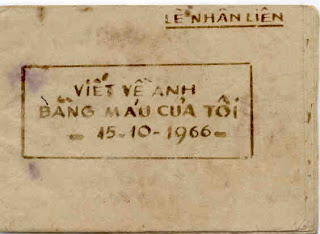 LÊ NHÂN LIÊN
VIẾT VỀ ANH
BẰNG MÁU CỦA TÔI
- 15-10-1966 -